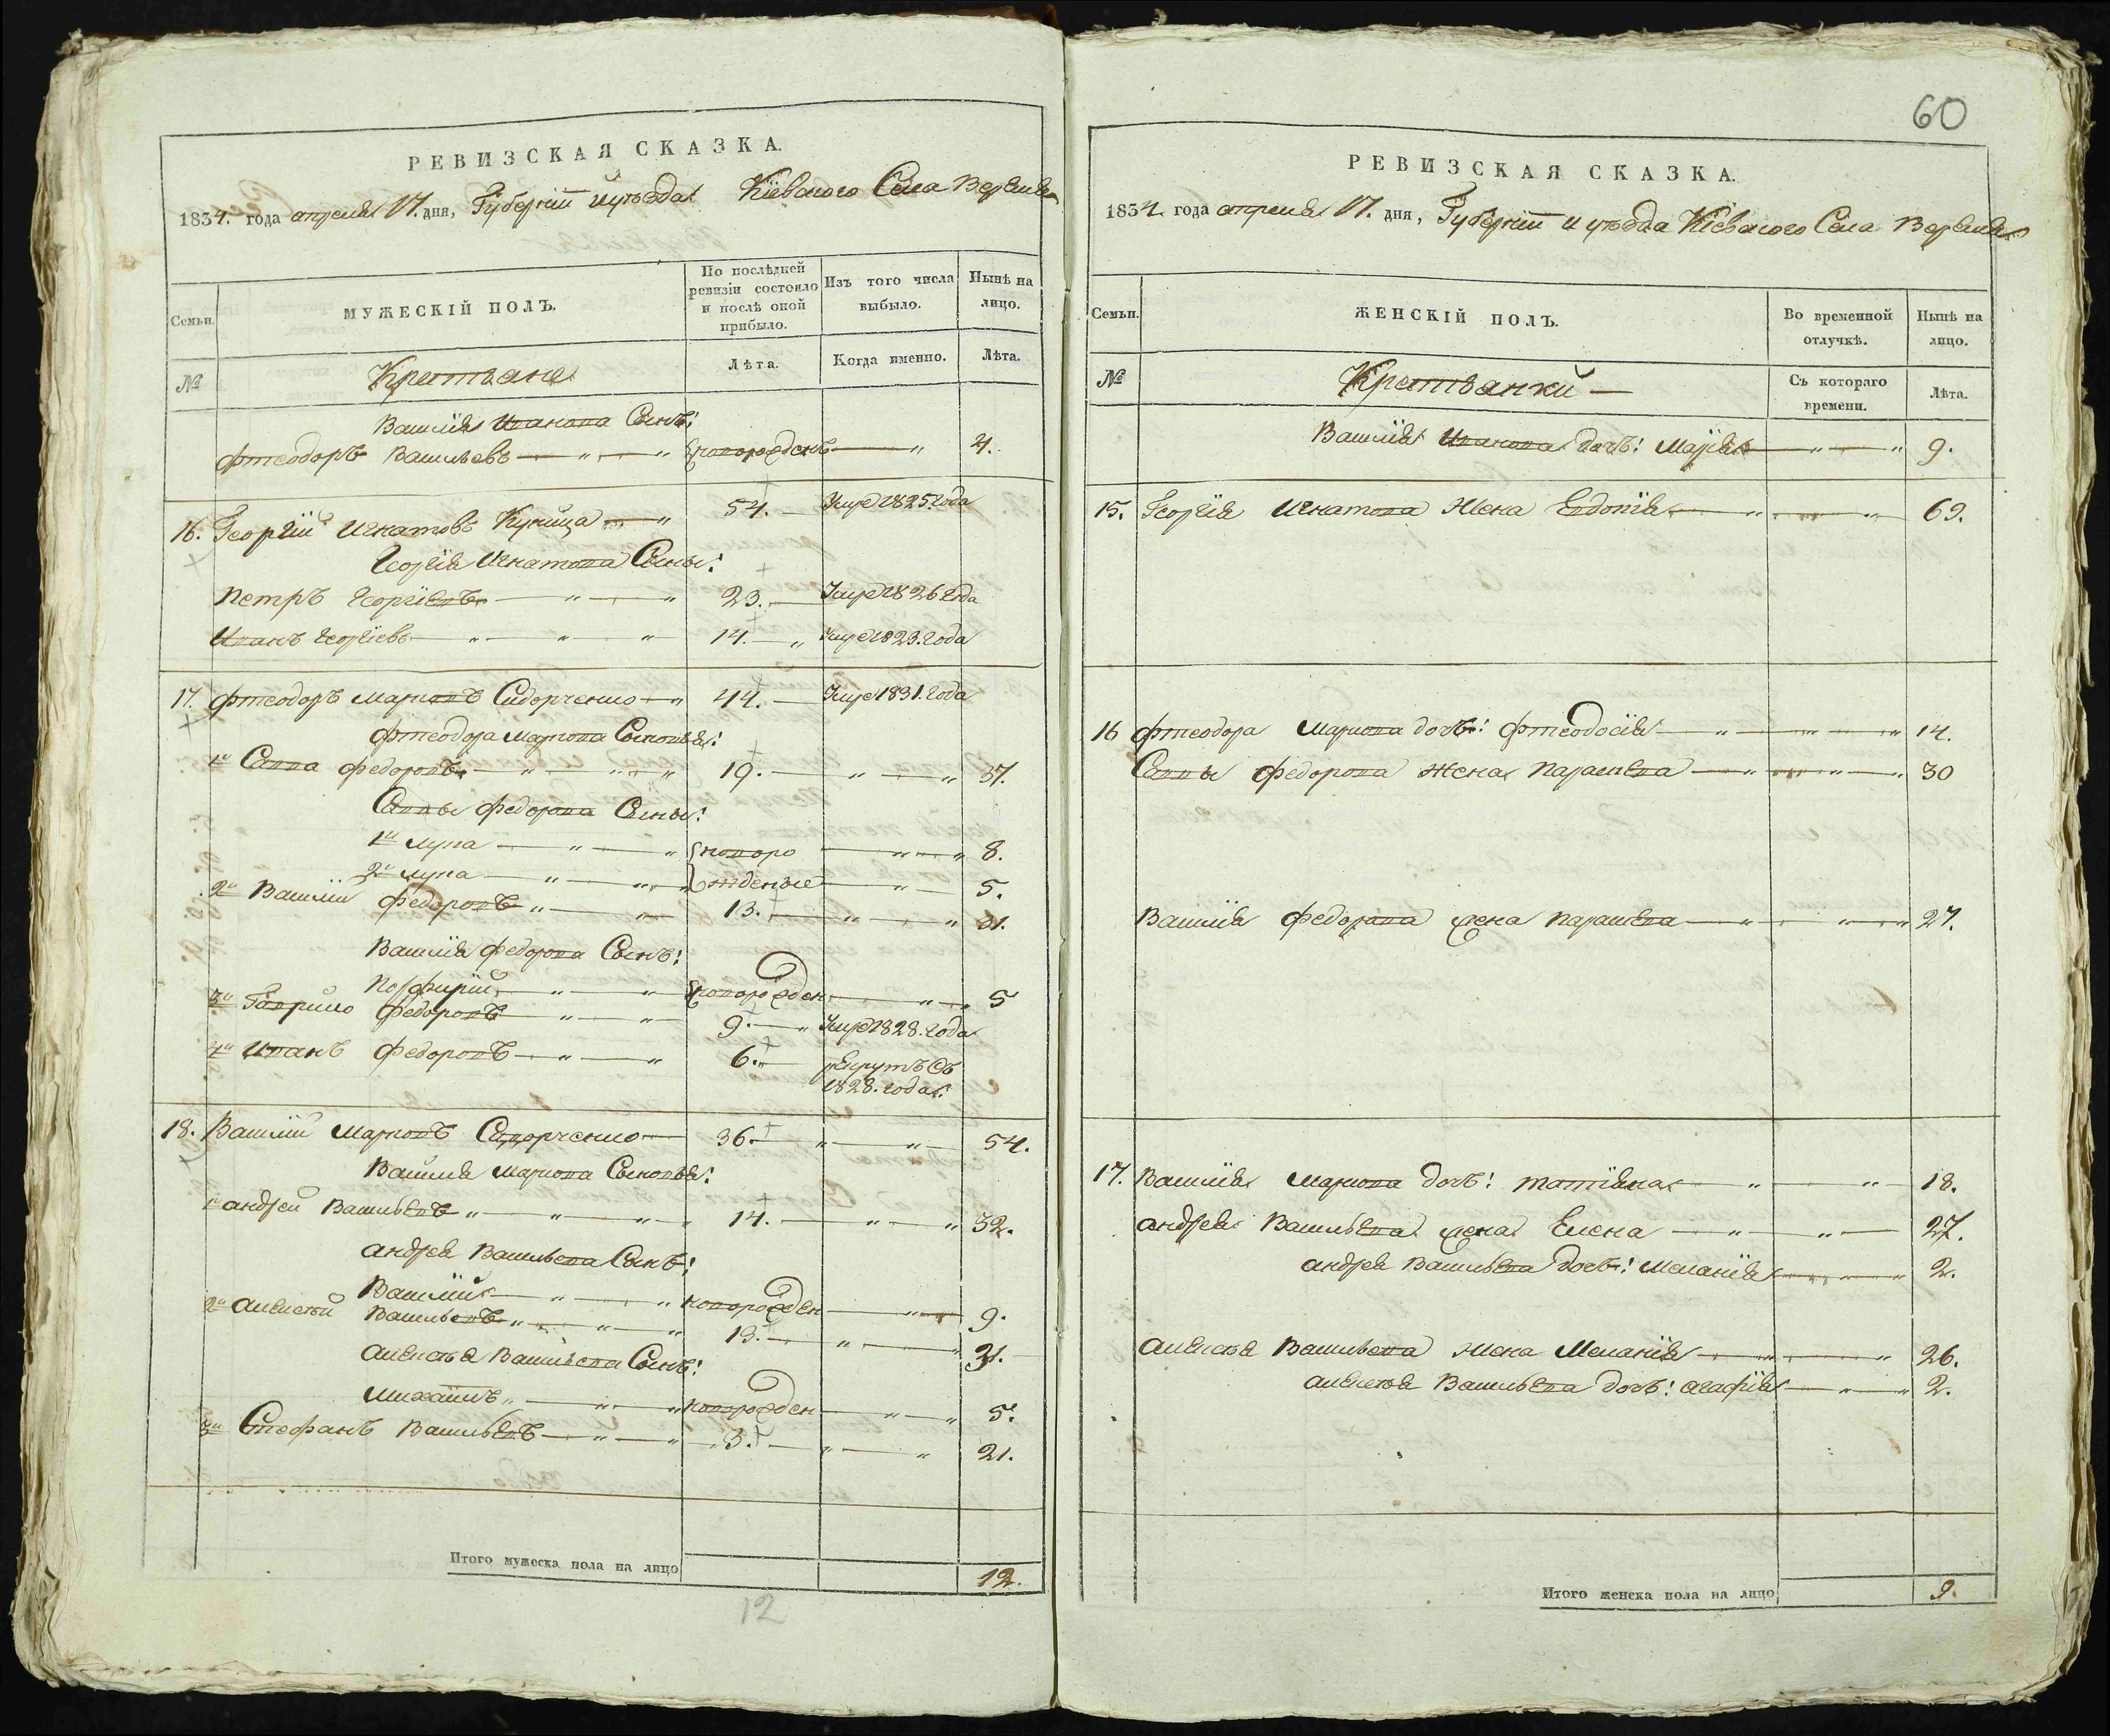 РЕВИЗСКАЯ СКАЗКА.
1834. года апреля 17. дня, Губернии и уезда Кіевского Села
Семьи.
МУЖЕСКІЙ ПОЛЪ.
По послѣдней ревизіи состояло и послѣ оной прибыло.
Изъ того числа выбыло.
Нынѣ на лицо.
№
Крестьяне
Лѣта.
Когда именно.
Лѣта.
Василія Иванова Сынъ:
Фтеодоръ Васильевъ новорожденъ 4.
16. Георгій Игнатовъ Куница 54. Умре 1825. года
Георгія Игнатова Сыны:
Петръ Георгіевъ 23. Умре 1826 года
Иванъ Георгіевъ 14. Умре 1823. года
17. Фтеодоръ Марковъ Сидорченко 44. Умре 1831. года
Фтеодора Маркова Сыновья:
1й Савва Федоровъ 19. 37.
Саввы Федорова Сыны:
1й Лука новоро 8.
2й Лука жденые 5.
2й Василій Федоровъ 13. 31.
Василія Федорова Сынъ:
Порфирій новорожден 5
3й Гаврило Федоровъ 9. Умре 1828. года
4й Иванъ Федоровъ 6. рекрутъ съ
1828. года.
18. Василій Марковъ Сидорченко 36. 54.
Василія Маркова Сыновья:
1й Андрей Васильевъ 14. 32.
Андрея Васильева Сынъ:
Василій новорожден 9.
2й Алексей Васильевъ 13. 31.
Алексея Васильева Сынъ:
Михаилъ новорожден 5.
3й Стефанъ Васильевъ 3. 21.
Итого мужеска пола на лицо
12.
12
60
РЕВИЗСКАЯ СКАЗКА.
1834 года апреля 17. дня, Губерніи и уезда Кіевского Села
Семьи.
ЖЕНСКІЙ ПОЛЪ.
Во временной отлучкѣ.
Нынѣ на лицо.
№
Крестьянки
Съ котораго времени.
Лѣта.
Василія Иванова дочь: Марія 9.
15. Георгія Игнатова Жена Евдокія 69.
16 Фтеодора Маркова дочь: Фтеодосія 14.
Саввы Федорова Жена Параскева 30
Василія Федорова жена Параскева 27.
17. Василія Маркова дочь: Татіяна 18.
Андрея Васильева жена Елена 27.
Андрея Васильева дочь: Меланія 2.
Алексея Васильева Жена Меланія 26.
Алексея Васильева дочь: Агафія 2.
Итого женска пола на лицо
9.